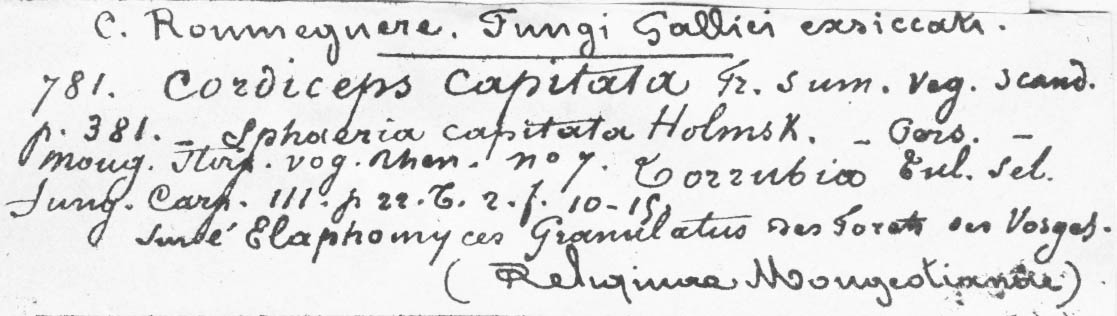 C. Roumeguere. Fungi Gallici exsiccati.
781. Cordiceps capitata Fr. Sum. Veg. Scand.
p. 381. _ Sphaeria capitata Holmsk. _ Pers. _
Moug. Stirp. vog. rhen. no 7. Torrubia Tul. Sel.
Fung. Carp. III. p 22. T. 2. f. 10-15.
Sur l'Elaphomyces Granulatus des Forets des Vosges.
(Reliquiae Mougeotianae)